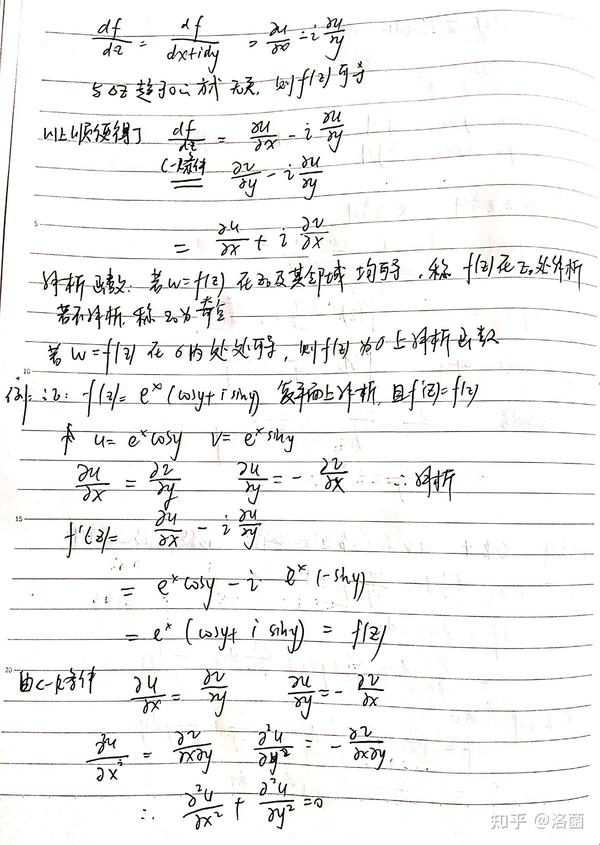 df/dz = df/(dx+idy) = ∂u/∂x - i ∂u/∂y
与Δz趋于0的方式无关, 则f(z)可导
以上顺便得了 df/dz = ∂u/∂x - i ∂u/∂y
C-R条件 ∂v/∂y - i ∂u/∂y
5
= ∂u/∂x + i ∂v/∂x
解析函数: 若w=f(z) 在z₀及其邻域均可导, 称f(z)在z₀处解析
若不解析, 称z₀为奇点
10
若w=f(z)在σ内处处可导, 则f(z)为σ上解析函数
例: 证: f(z)= eˣ(cosy+i siny) 复平面上解析, 且f'(z)=f(z)
u= eˣcosy v= eˣsiny
∂u/∂x = ∂v/∂y ∂u/∂y = - ∂v/∂x ∴解析
15
f'(z)= ∂u/∂x - i ∂u/∂y
= eˣcosy - i eˣ(-siny)
= eˣ(cosy+ i siny) = f(z)
20
由C-R条件 ∂u/∂x = ∂v/∂y ∂u/∂y = - ∂v/∂x
∂²u/∂x² = ∂²v/∂x∂y ∂²u/∂y² = - ∂²v/∂x∂y
∴ ∂²u/∂x² + ∂²u/∂y² =0
知乎 @洛菌